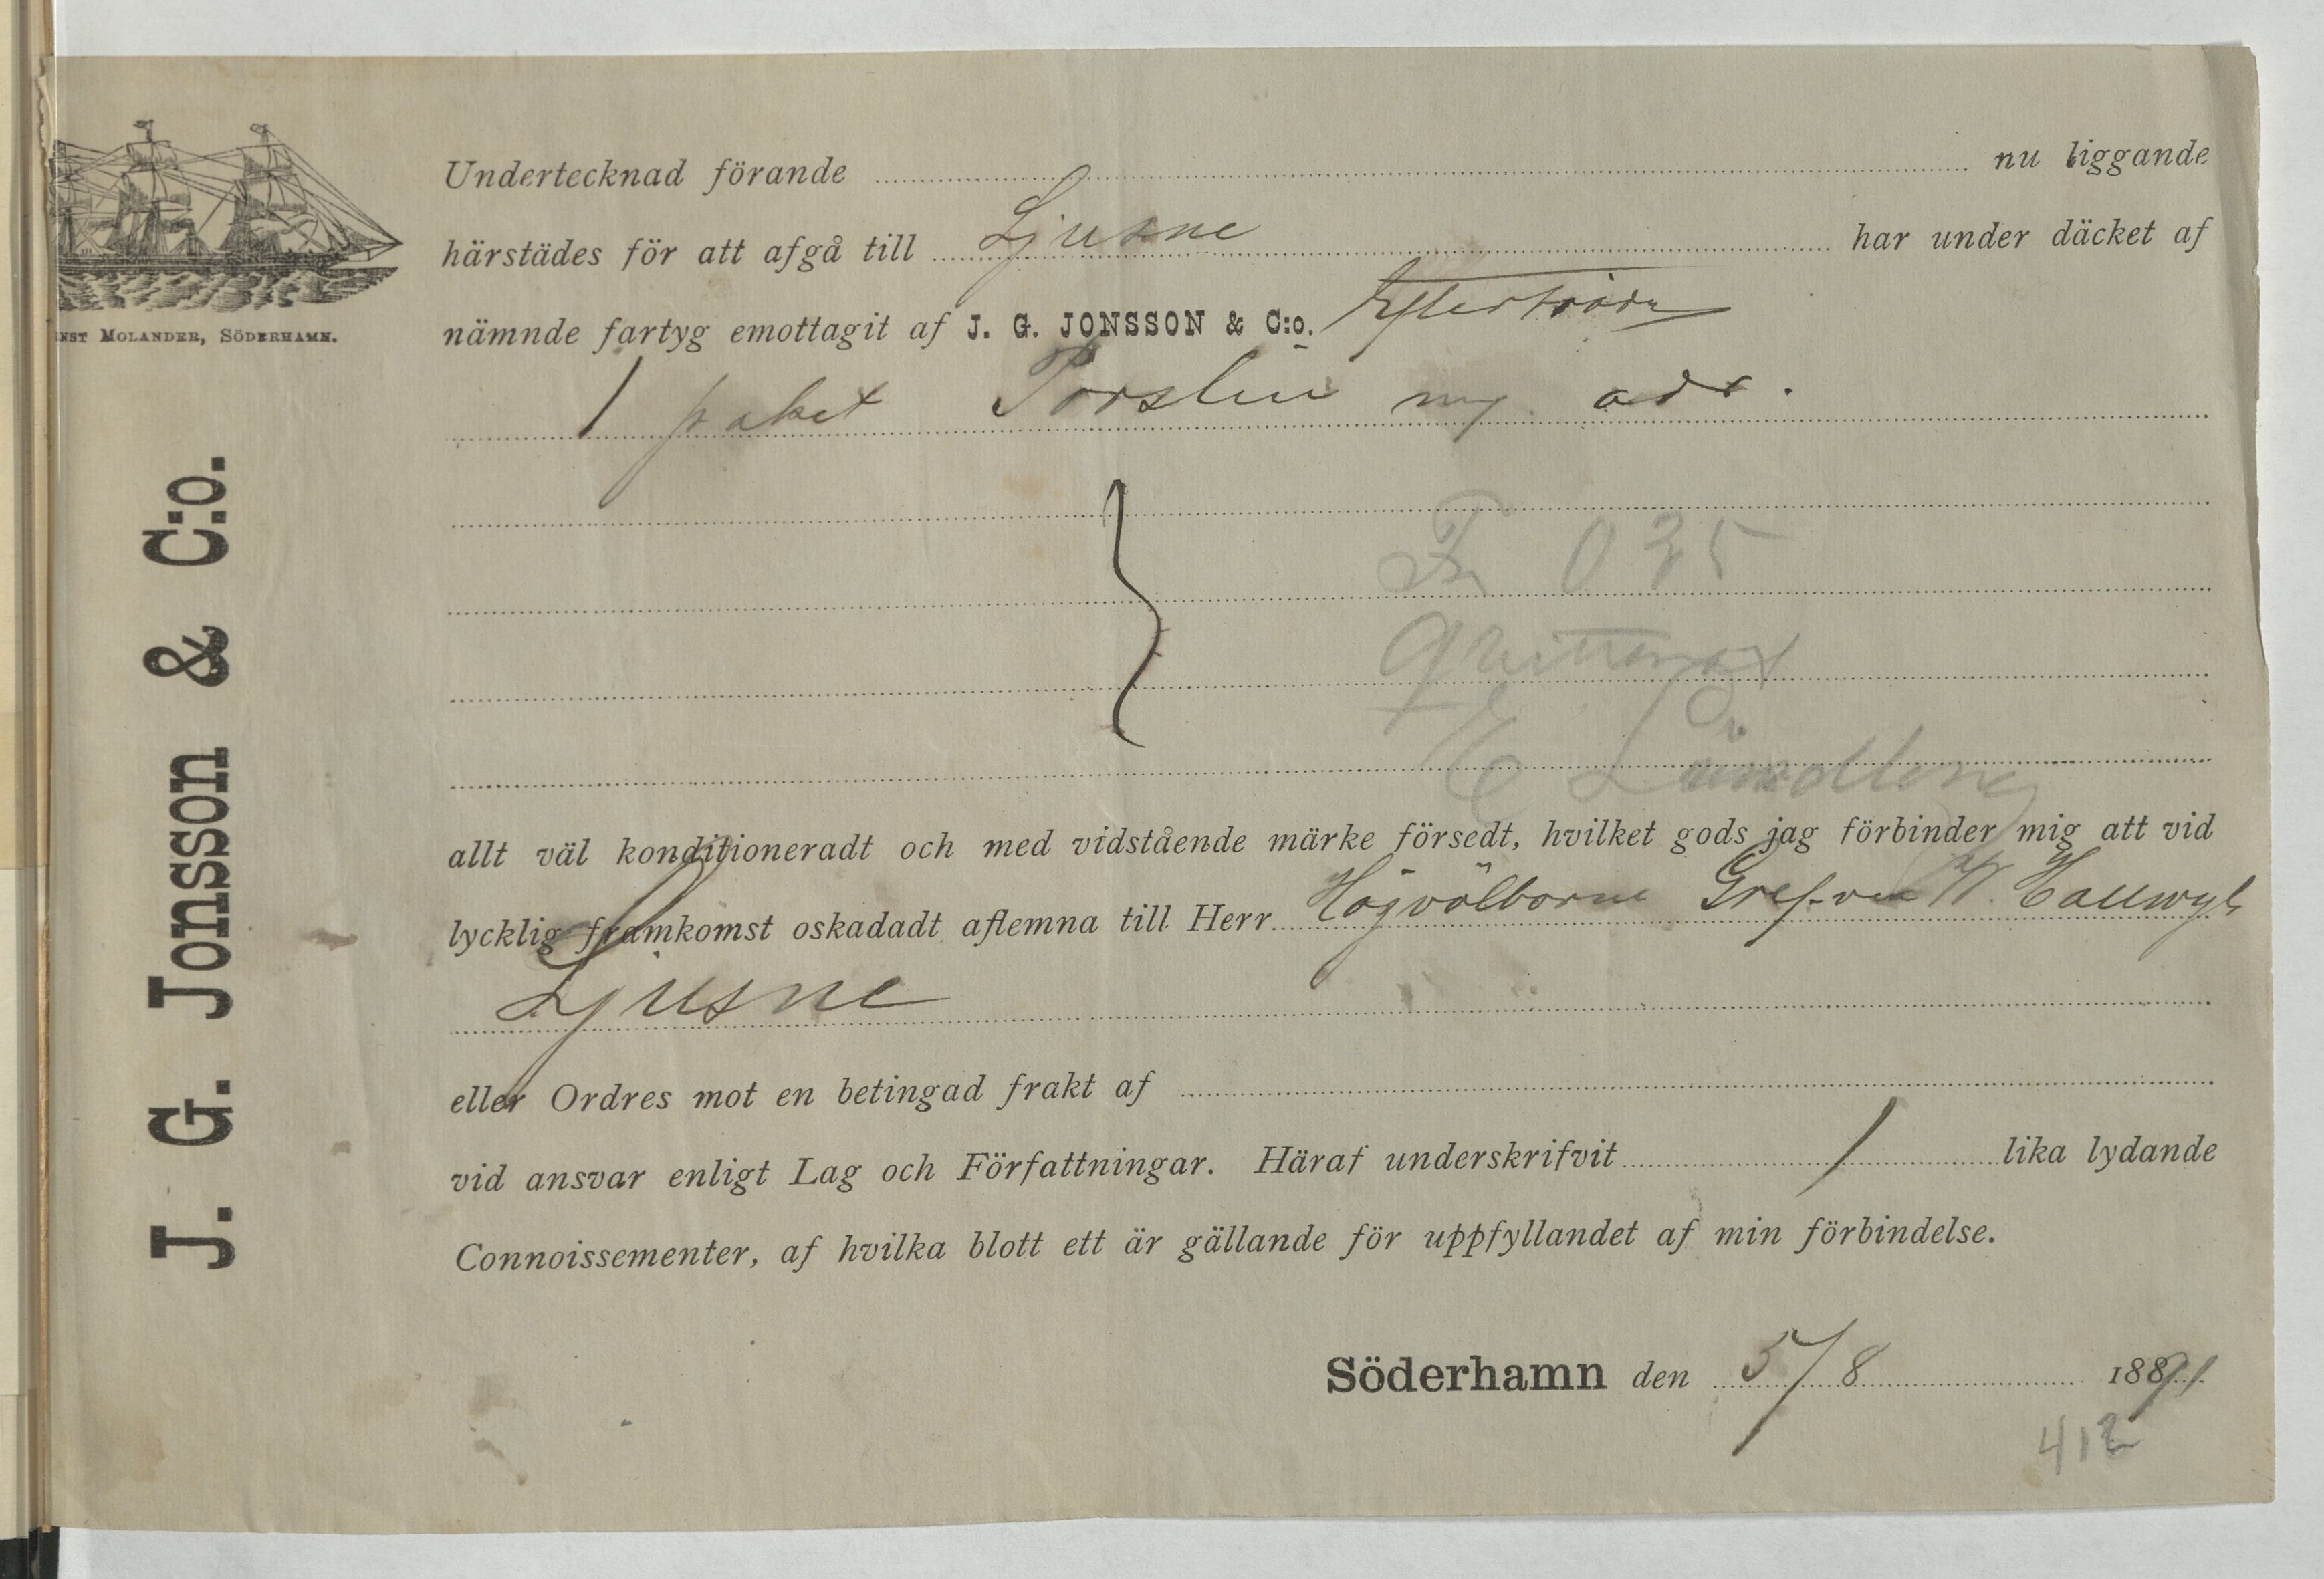 Undertecknad förande nu liggande
härstädes för att afgå till Ljusne har under däcket af
nämnde fartyg emottagit af J. G. JONSSON & C:o. Efterträdr
1 paket Porslin mg adr.
Fr 0 35
Qvitteras
E Lundberg
allt väl konditioneradt och med vidstående märke försedt, hvilket gods jag förbinder mig att vid
lycklig framkomst oskadadt aflemna till Herr Högvälborne Grefven W. Hallwyl
Ljusne
eller Ordres mot en betingad frakt af
vid ansvar enligt Lag och Författningar. Häraf underskrifvit 1 lika lydande
Connoissementer, af hvilka blott ett är gällande för uppfyllandet af min förbindelse.
Söderhamn den 5/8 1891
412
MOLANDER, SÖDERHAMN.
J. G. Jonsson & C:o.